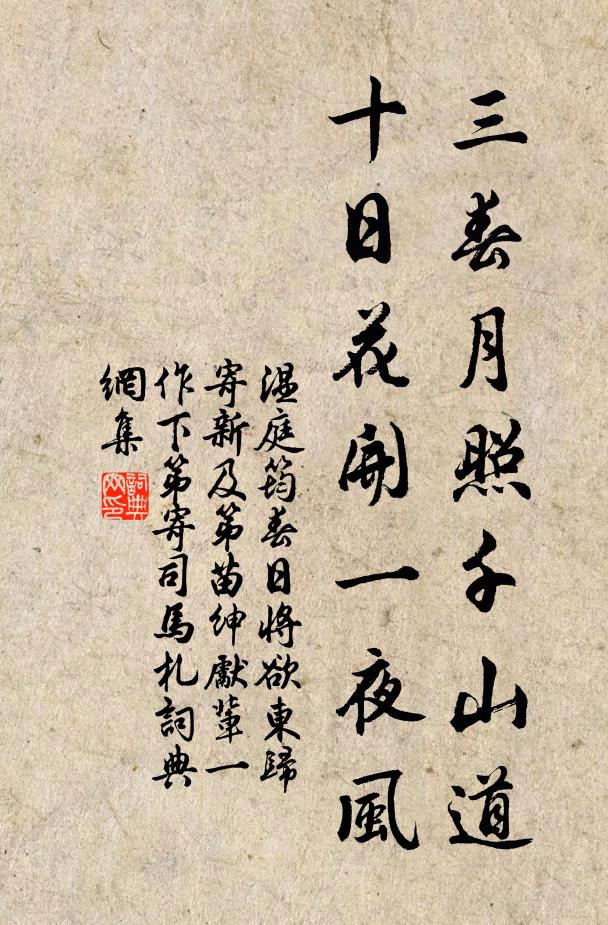 三春月照千山道
十日花開一夜風
溫庭筠春日將欲東歸
寄新及第苗紳獻輩一
作下第寄司馬札詞典
網集
詞典
網印